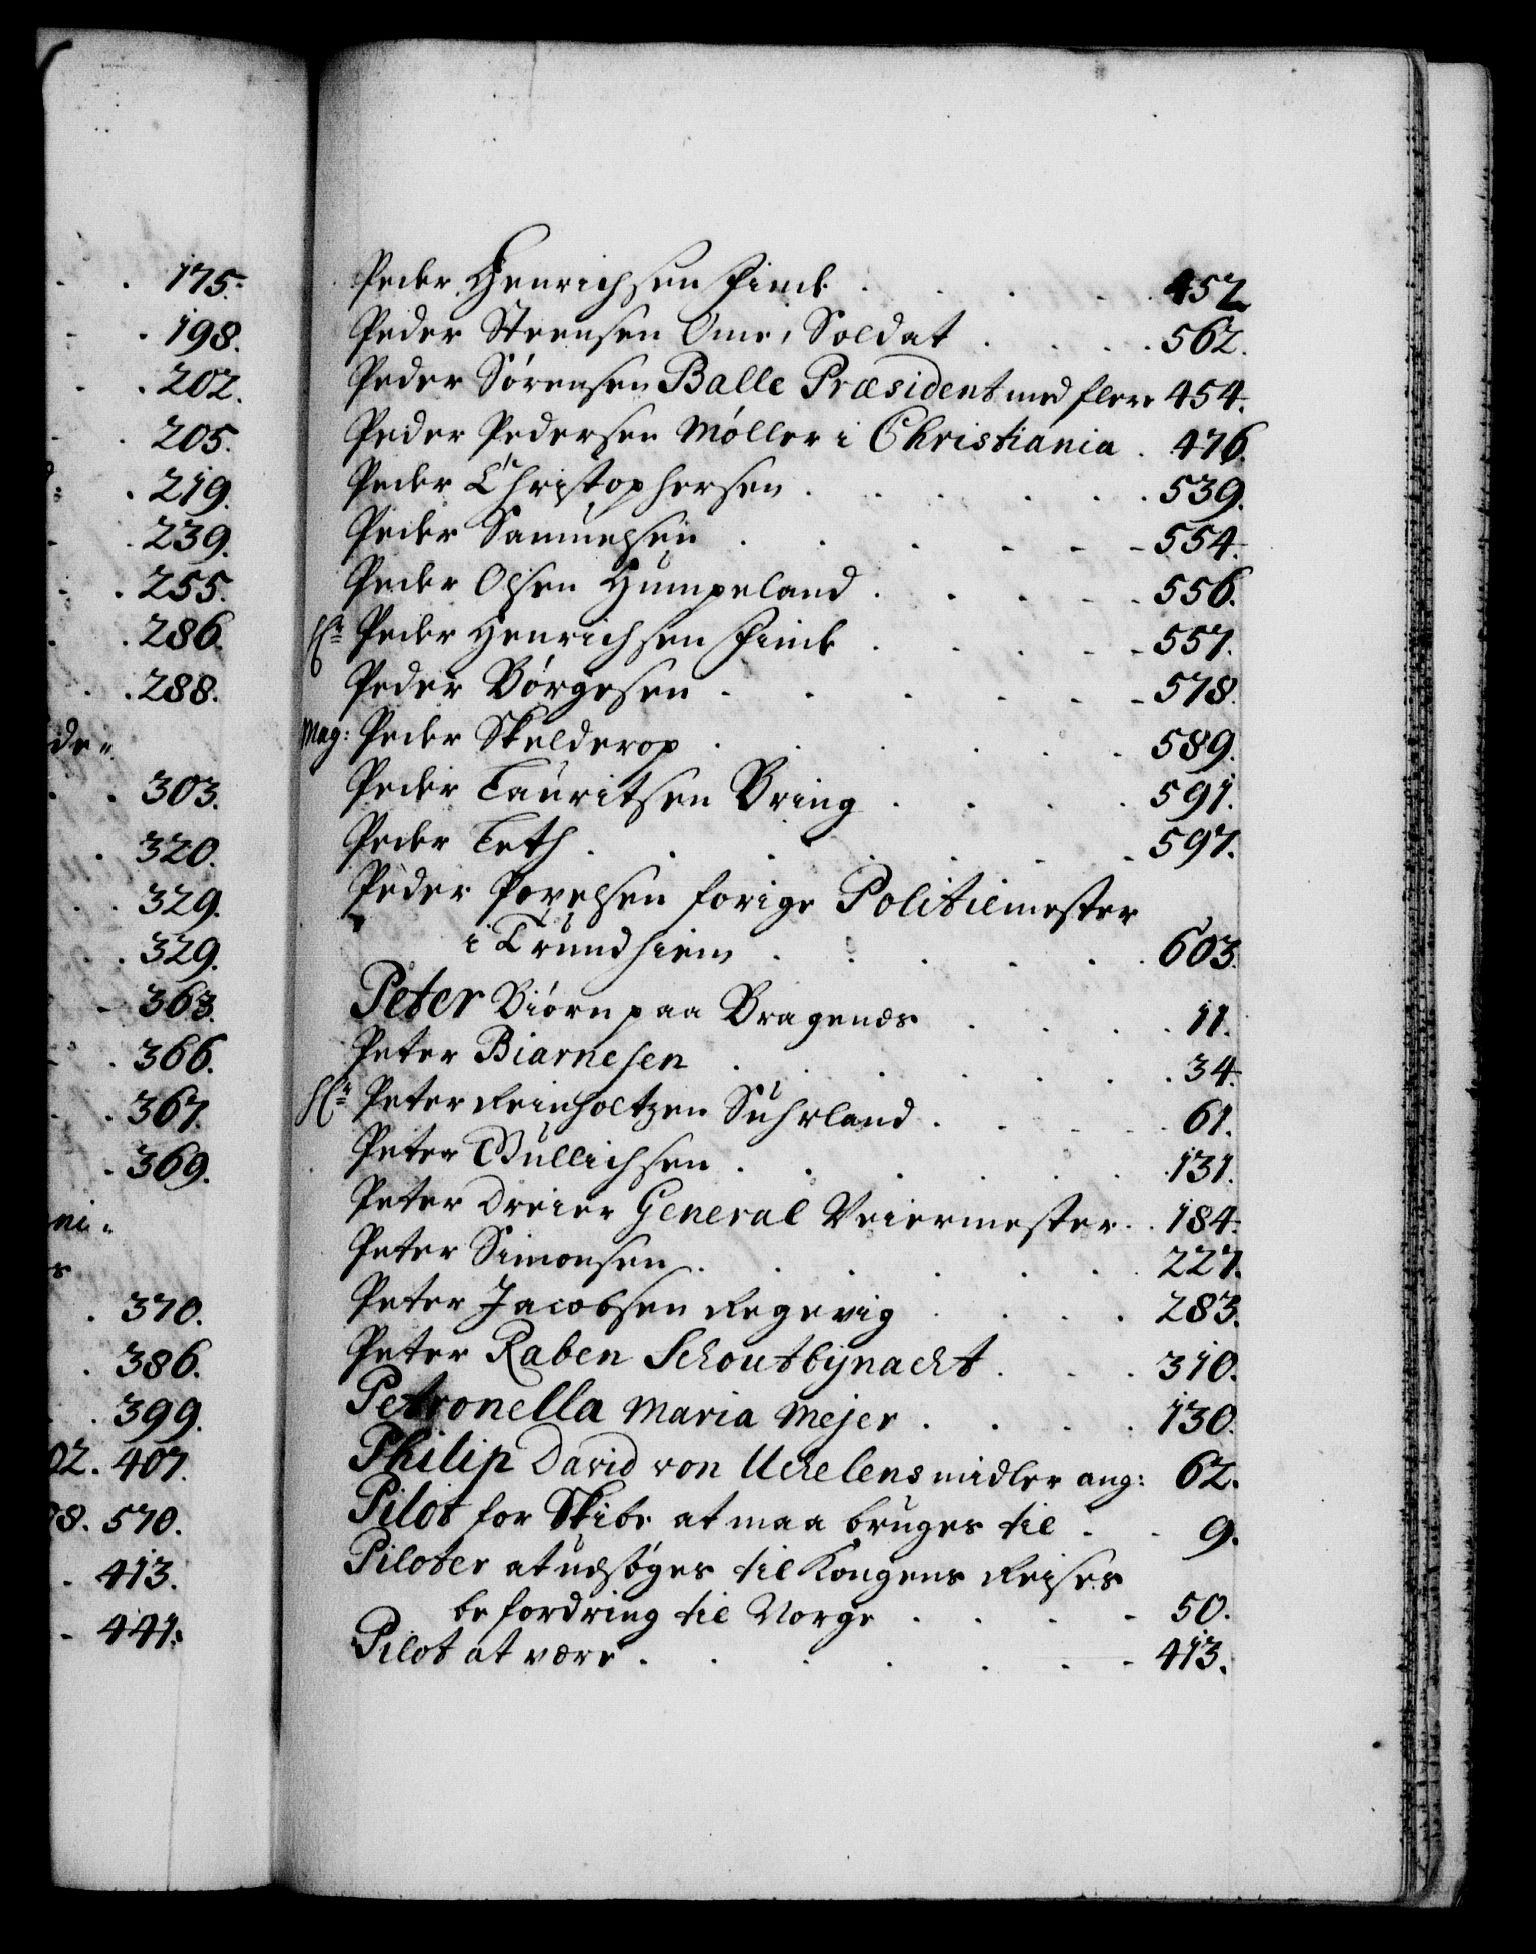 175.
198.
202.
205.
219.
239.
255.
286.
288.
de=
303.
320.
329.
329.
363.
366.
367.
369.
ni=
s
370.
386.
399.
02. 407.
98. 570.
413.
441.
Peder Henrichsen Finck . . . . 452
Peder Steensen Ome, Soldat . . . 562.
Peder Sørensen Balle Præsident med flere 454.
Peder Pedersen Møller i Christiania . 476.
Peder Christophersen . . . . . 539.
Peder Samuelsen . . . . . . 554.
Peder Olsen Humpeland . . . . 556.
Hr: Peder Henrichsen Finck . . . . 557.
Peder Børgesen . . . . . . 578.
Mag: Peder Skelderop . . . . . . 589.
Peder Lauritsen Bring . . . . 591.
Peder Leth . . . . . . . 597.
Peder Povelsen forige Politiemester
i Trundhiem . . . . . 603.
Peter Biørn paa Bragenæs . . . . 11.
Peter Biarnesen . . . . . . 34.
Hr: Peter Reinholtzen Suhrland . . . . 61.
Peter Wullichsen . . . . . . 131.
Peter Dreier General Veiermester . . 184.
Peter Simonsen . . . . . . 227.
Peter Jacobsen Regevig . . . . 283.
Peter Raben Schoutbynacht . . . 310.
Petronella Maria Mejer . . . . 130.
Philip David von Uchelens midler ang: 62.
Pilot for Skibe at maa bruges til . . 9.
Piloter at udsøges til Kongens Reises
befordring til Norge . . . . 50.
Pilot at være . . . . . . . 413.